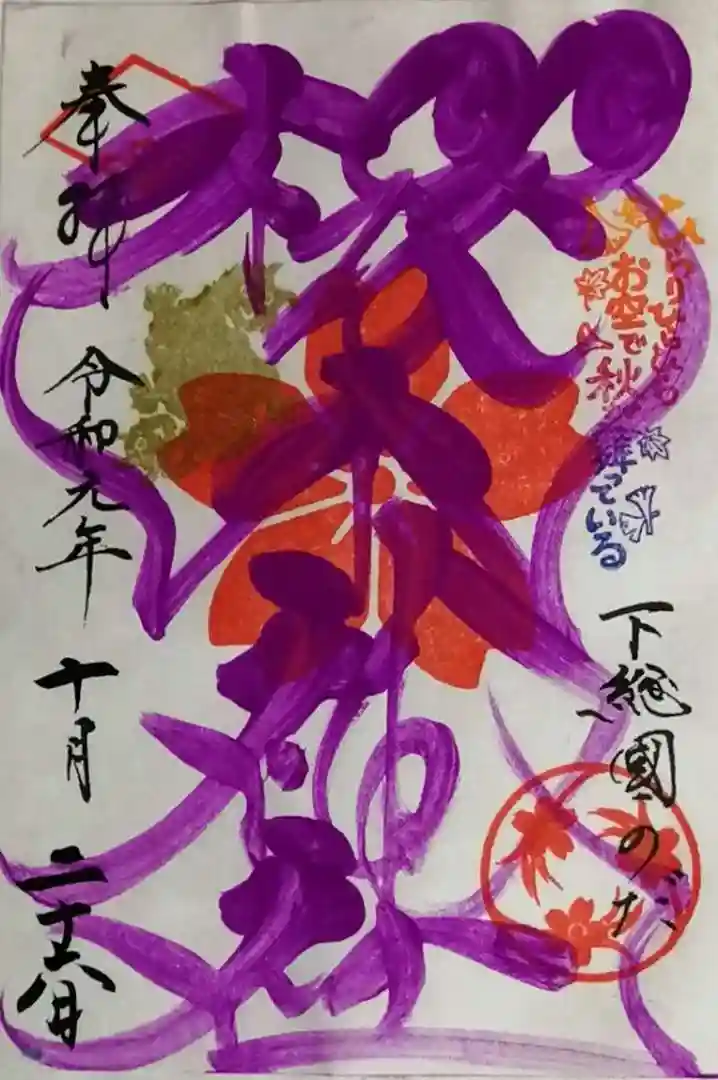 ひらりひらり
お空で秋が舞っている
下総國のだ
櫻木神社
奉拝
令和元年
十月
二十六日